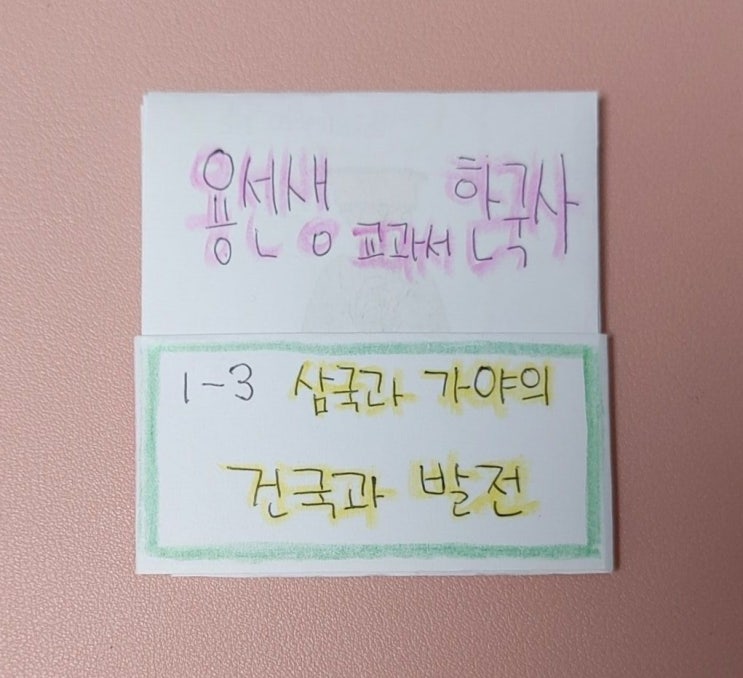 용선생 교과서 한국사
1-3 삼국과 가야의
건국과 발전